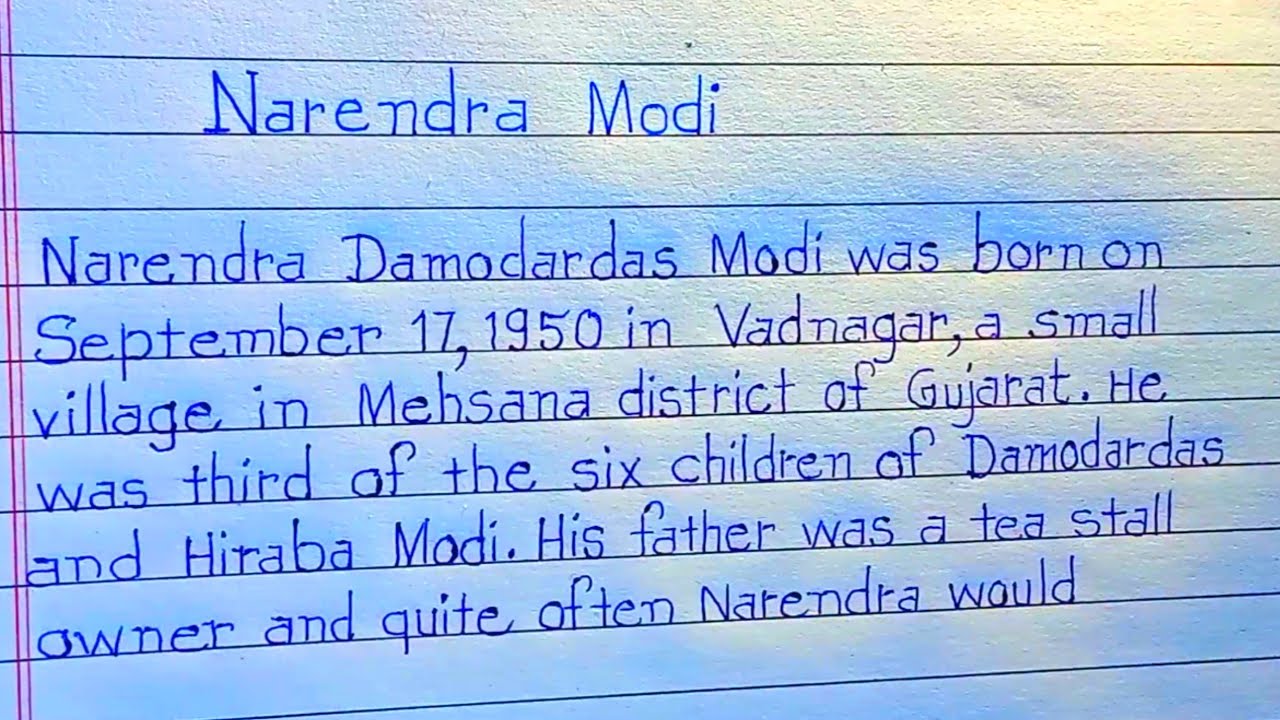 Narendra Modi
Narendra Damodardas Modi was born on
September 17, 1950 in Vadnagar, a small
village in Mehsana district of Gujarat. He
was third of the six children of Damodardas
and Hiraba Modi. His father was a tea stall
owner and quite often Narendra would